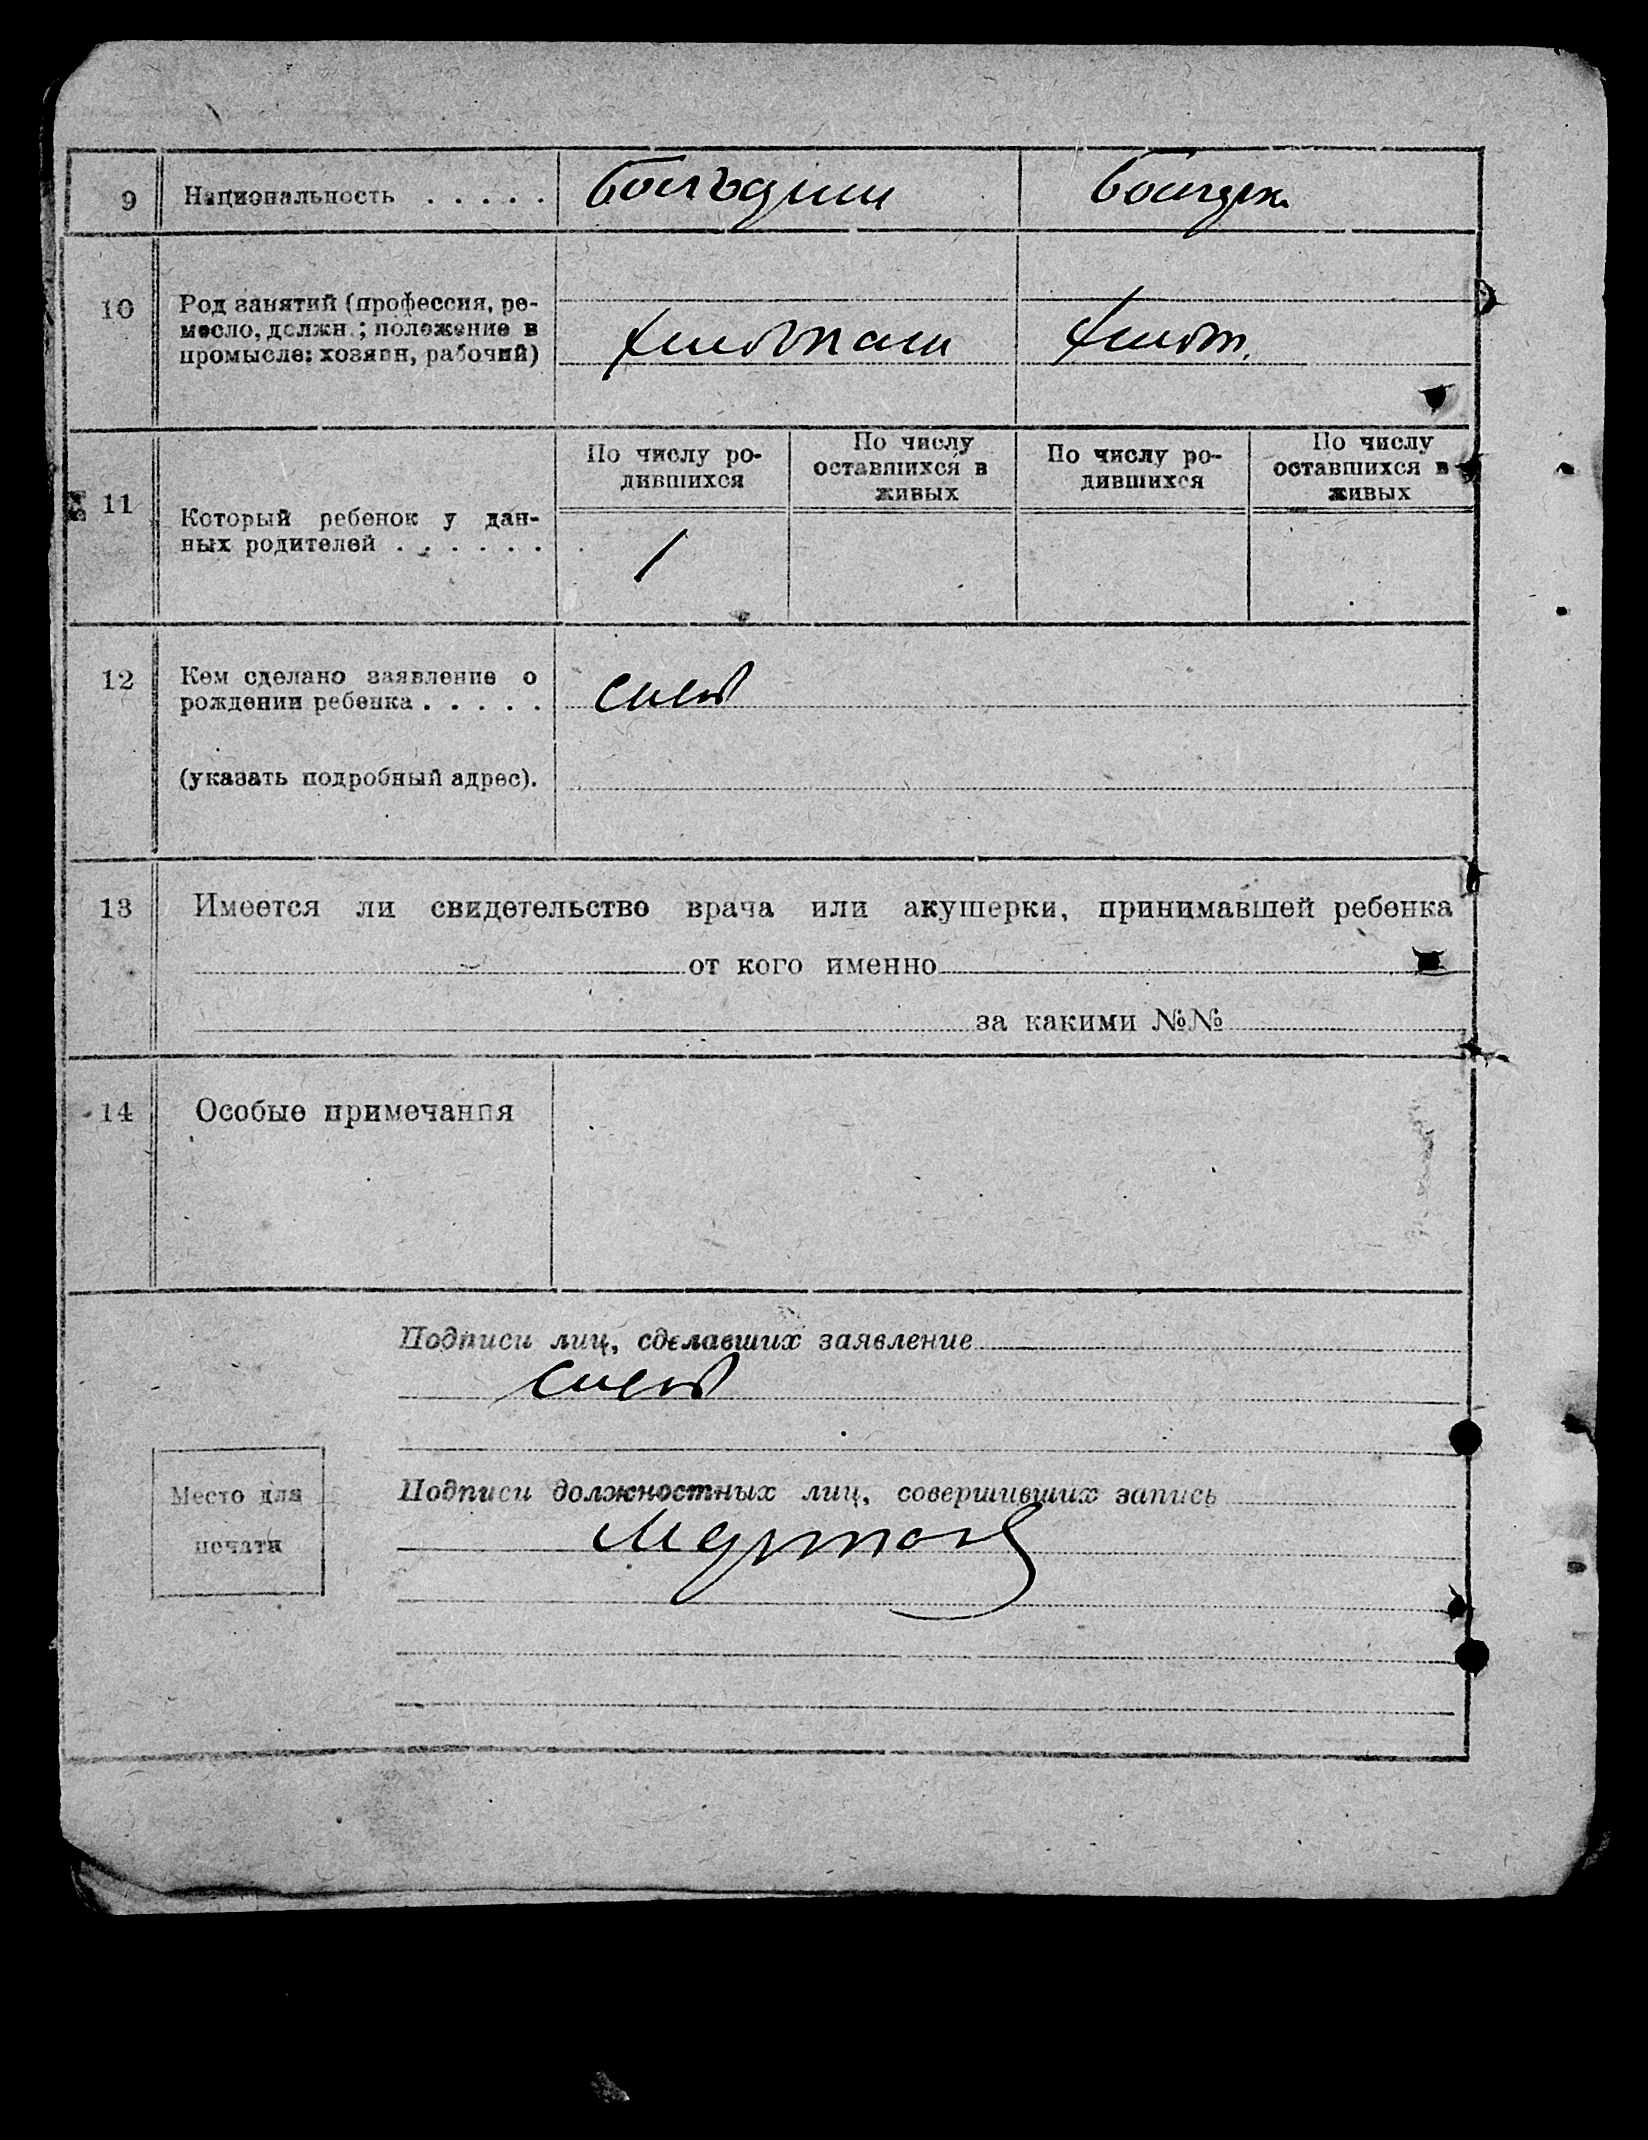 9 Национальность . . . . .
10 Род занятий (профессия, ре-
месло, должн.; положение в
промысле: хозяин, рабочий)
11 Который ребенок у дан-
ных родителей . . . . . .
По числу ро-
дившихся
По числу
оставшихся в
живых
По числу ро-
дившихся
По числу
оставшихся в
живых
1
12 Кем сделано заявление о
рождении ребенка . . . . .
(указать подробный адрес).
13 Имеется ли свидетельство врача или акушерки, принимавшей ребенка
от кого именно
за какими №№
14 Особые примечания
Подписи лиц, сделавших заявление
Место для
печати
Подписи должностных лиц, совершивших запись